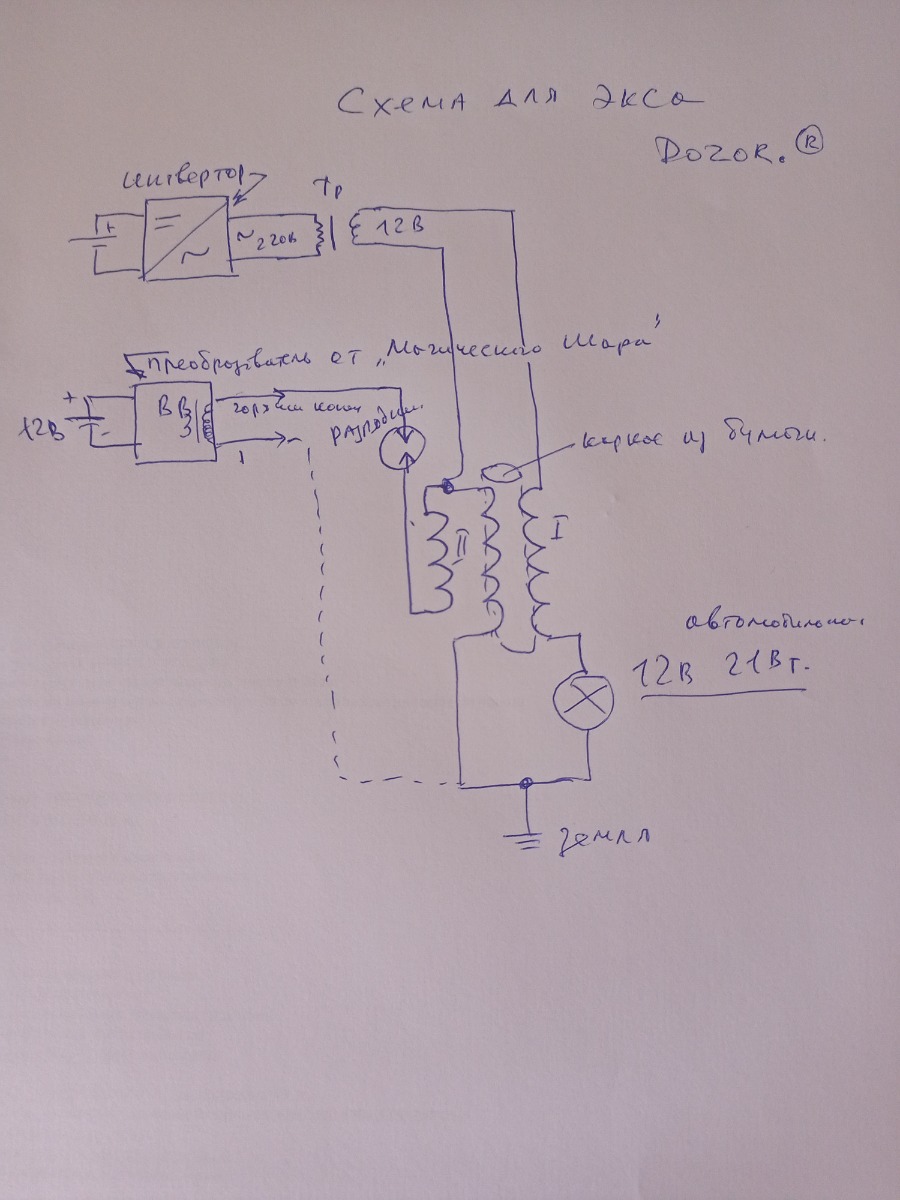 Схема для экса
DOZOR. ®
инвертор
Тр
+
~220в
12В
Преобразователь от „Магического шара"
+
12В
-
ВВ
горячий конец
разрядник.
каркас из бумаги.
II
I
автомобильная
12В 21Вт.
земля